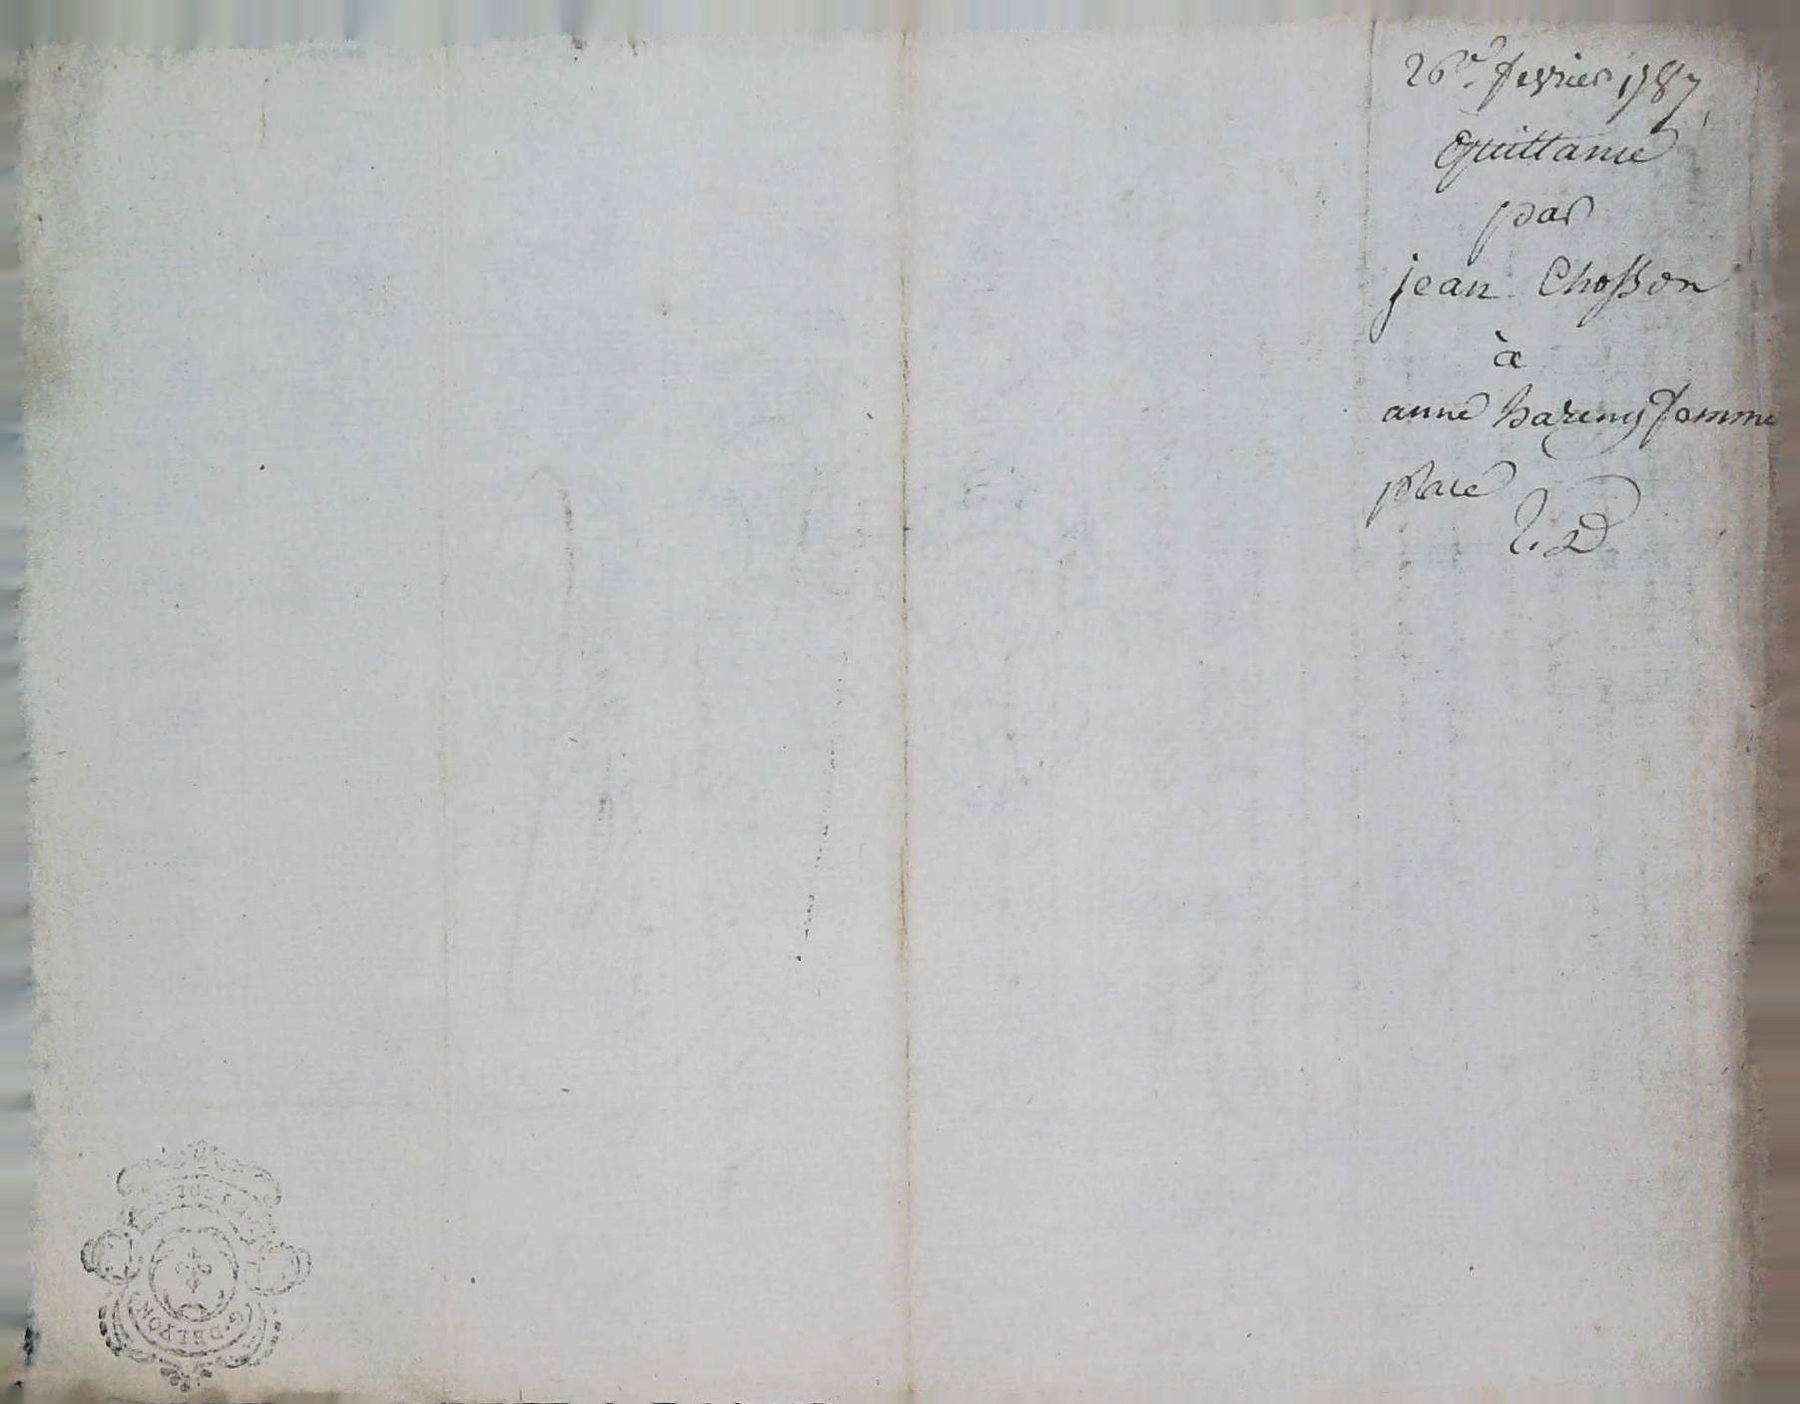 26e fevrier 1787
Quittance
par
jean Chosson
à
anne bazeny femme
place
G. DELYON